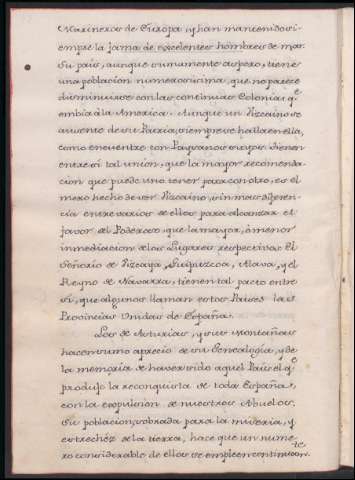 Marineros de Europa, y han mantenido si-
empre la fama de excelentes hombres de mar.
Su pais, aunque sumamente aspero, tiene
una poblacion numerosisima, que no parece
disminuirse con las continuas Colonias qe
embia à la America. Aunque un Vizcaino se
ausente de su Patria, siempre se halla en ella,
como encuentre con Paysanos suyos. Tienen
entre sì tal union, que la mayor recomenda-
cion que puede uno tener para con otro, es el
mero hecho de ser Vizcaino, sin mas diferen-
cia entre varios de ellos para alcanzar el
favor del Poderoso, que la mayor, ò menor
inmediacion de los Lugares respectivos. El
Señorio de Vizcaya, Guipuzcoa, Alava, y el
Reyno de Navarra, tienen tal pacto entre
sì, que algunos llaman estos Paises las
Provincias Unidas de España.
Los de Asturias, y sus Montañas
hacen sumo aprecio de su Genealogia, y de
la memoria de haver sido aquel Pais el qe
produjo la reconquista de toda España,
con la expulsion de nuestros Abuelos.
Su poblacion, sobrada para la miseria, y
estrechèz de la tierra, hace que un nume-
ro considerable de ellos se empleen continuam.te